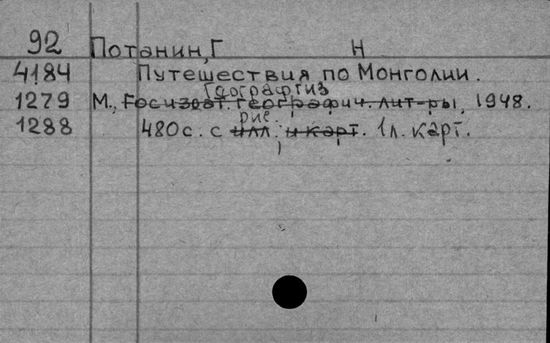 92 Потанин, Г Н
4184 Путешествия по Монголии.
Географгиз
1279 М., Госизват. географич. лит-ры, 1948.
рис.
1288 480с. с илл. и карт. 1л. карт.